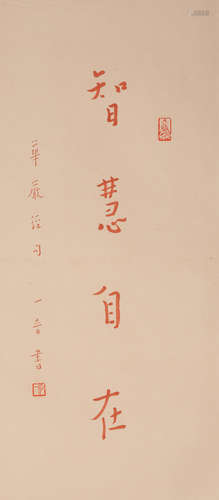 智慧自在
華嚴經句
一音書